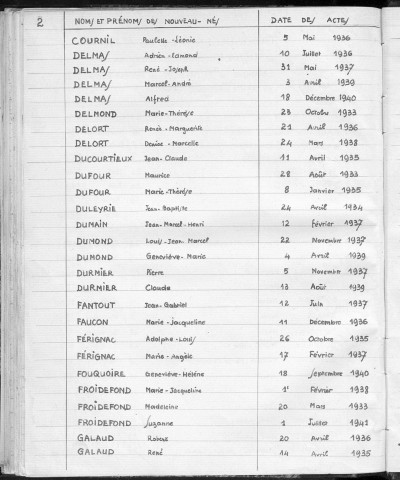 2 NOMS ET PRÉNOMS DES NOUVEAU-NÉS DATE DES ACTES
COURNIL Paulette-Léonie 5 Mai 1936
DELMAS Adrien-Edmond 10 Juillet 1936
DELMAS René-Joseph 31 Mai 1937
DELMAS Marcel-André 3 Avril 1939
DELMAS Alfred 18 Décembre 1940
DELMOND Marie-Thérèse 23 Octobre 1933
DELORT Renée-Marguerite 21 Avril 1936
DELORT Denise-Marcelle 24 Mars 1938
DUCOURTIEUX Jean-Claude 11 Avril 1935
DUFOUR Maurice 28 Août 1933
DUFOUR Marie-Thérèse 8 Janvier 1935
DULEYRIE Jean-Baptiste 24 Avril 1934
DUMAIN Jean-Marcel-Henri 12 Février 1937
DUMOND Louis-Jean Marcel 22 Novembre 1937
DUMOND Geneviève-Marie 4 Avril 1939
DURMIER Pierre 5 Novembre 1937
DURMIER Claude 13 Août 1939
FANTOUT Jean-Gabriel 12 Juin 1937
FAUCON Marie-Jacqueline 11 Décembre 1936
FÉRIGNAC Adolphe-Louis 26 Octobre 1935
FÉRIGNAC Marie-Angèle 17 Février 1937
FOUQUOIRE Geneviève-Hélène 18 Septembre 1940
FROIDEFOND Marie-Jacqueline 1er Février 1938
FROIDEFOND Madeleine 20 Mars 1933
FROIDEFOND Suzanne 1 Juillet 1941
GALAUD Robert 20 Avril 1936
GALAUD René 14 Avril 1935